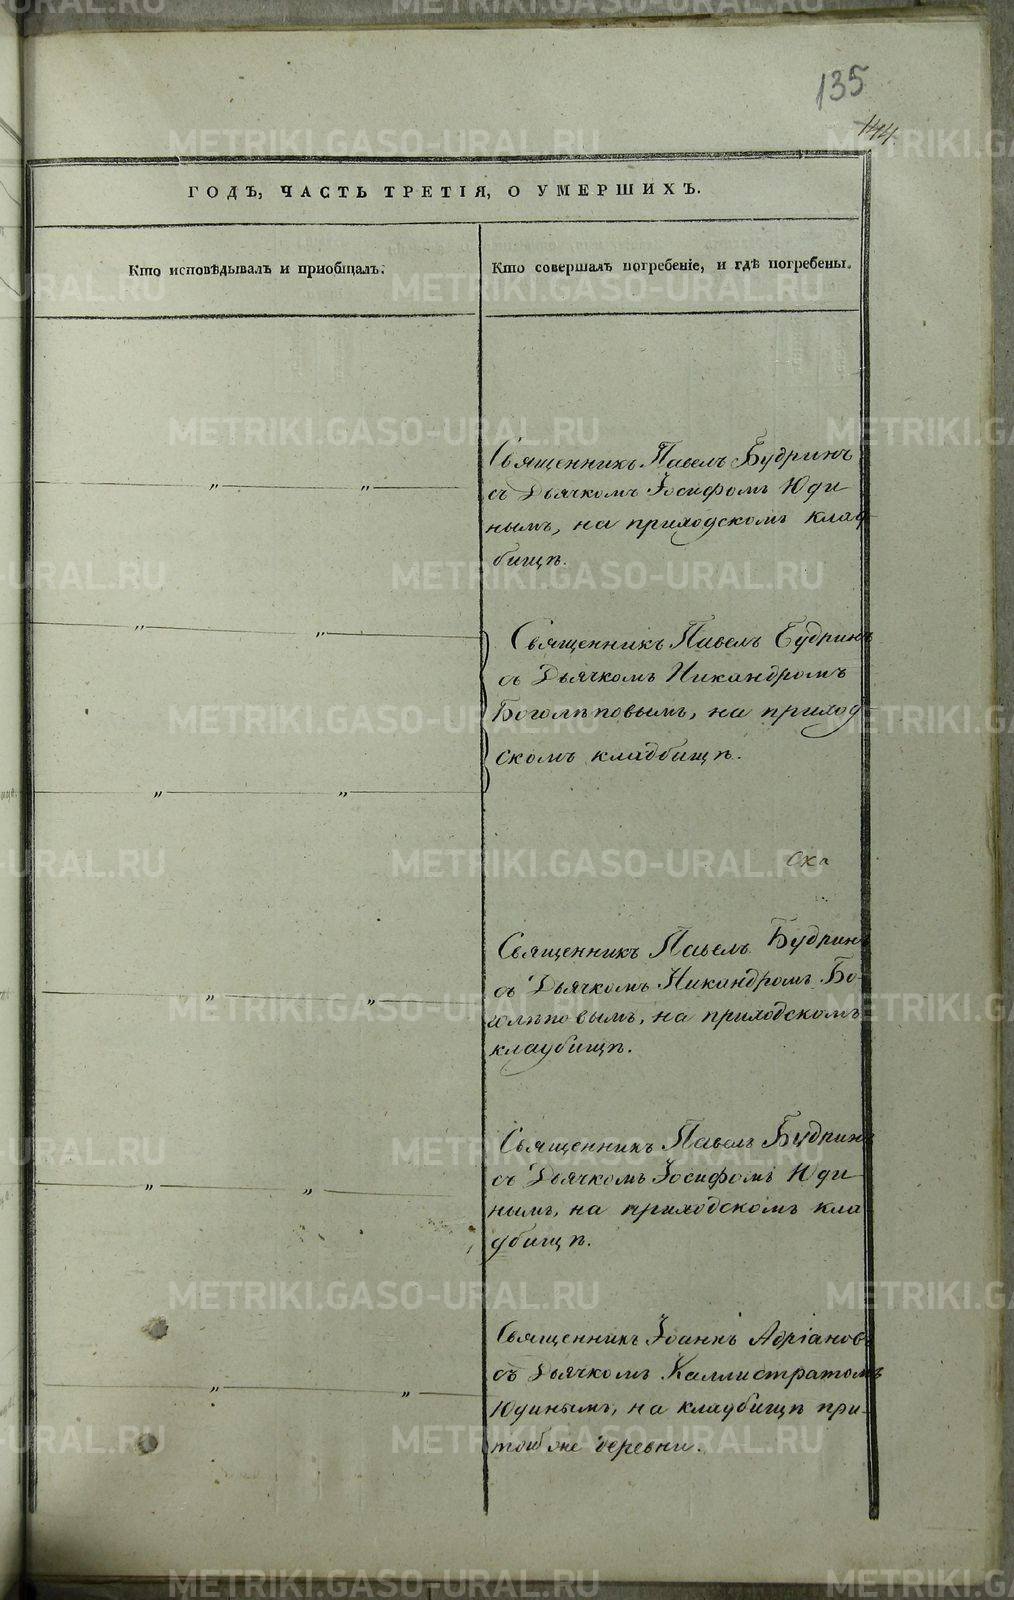 135
144
ГОДѢ, ЧАСТЬ ТРЕТІЯ, О УМЕРШИХЪ.
Кто исповѣдывалъ и приобщалъ.
Кто совершалъ погребеніе, и гдѣ погребены.
Священникъ Павелъ Будринъ
съ Дьячкомъ Іосифомъ Юди
нымъ, на приходскомъ клад
бищѣ.
Священникъ Павелъ Будринъ
съ Дьячкомъ Никандромъ
Боголѣповымъ, на приход
скомъ кладбищѣ.
Священникъ Павелъ Будринъ
съ Дьячкомъ Никандромъ Бо-
голѣповымъ, на приходскомъ
кладбищѣ.
Священникъ Павелъ Будринъ
съ Дьячкомъ Іосифомъ Юди
нымъ, на приходскомъ кла
дбищѣ.
Священникъ Іоаннъ Адріановъ
съ Дьячкомъ Каллистратомъ
Юдинымъ, на кладбищѣ при
той же деревни.
METRIKI.GASO-URAL.RU